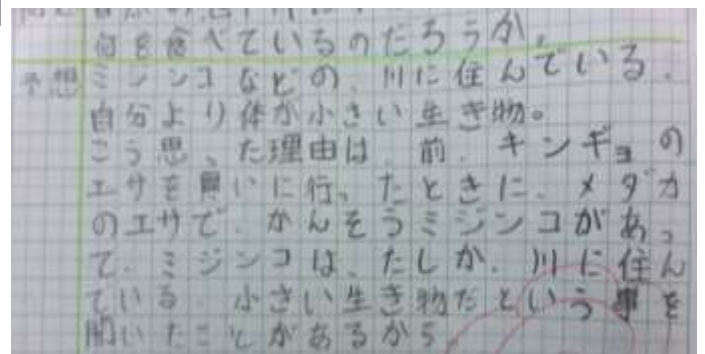 何を食べているのだろうか。
予想 ミジンコなどの、川に住んでいる、
自分より体が小さい生き物。
こう思った理由は、前、キンギョの
エサを買いに行ったときに、メダカ
のエサで、かんそうミジンコがあっ
て、ミジンコは、たしか、川に住ん
でいる、小さい生き物だという事を
聞いたことがあるから